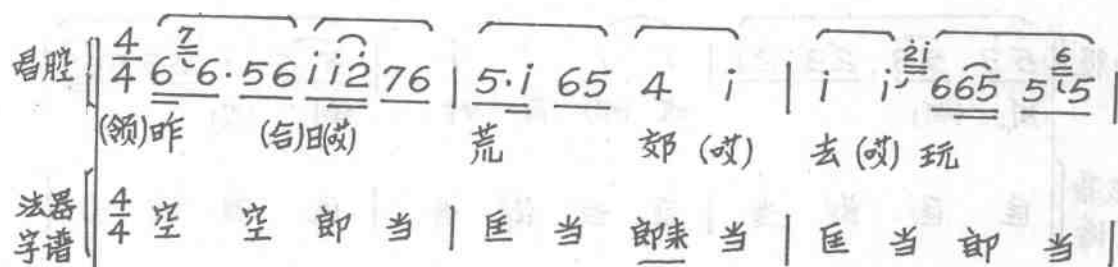 唱腔 4/4 6 7 6·56 i i 2 76 | 5·i 65 4 i | i i 2i 665 5 6 5 |
(领)昨 (合)日(哎) 荒 郊 (哎) 去 (哎) 玩
法器字谱 4/4 空 空 郎 当 | 匡 当 郎来 当 | 匡 当 郎 当 |